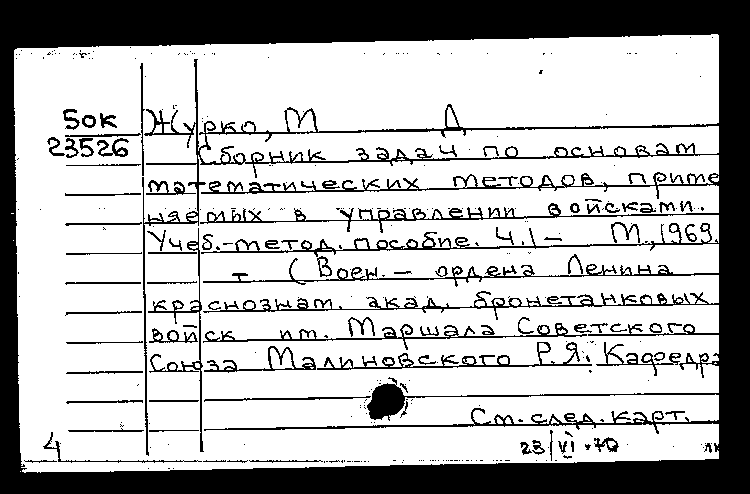 Бок
23526
Журко, М Д
Сборник задач по основам
математических методов, приме
няемых в управлении войсками.
Учеб.-метод. пособие. Ч.1 — М., 1969.
т (Воен. — ордена Ленина
краснознам. акад. бронетанковых
войск им. Маршала Советского
Союза Малиновского Р.Я. Кафедра
См. след. карт.
4 23/VI-70